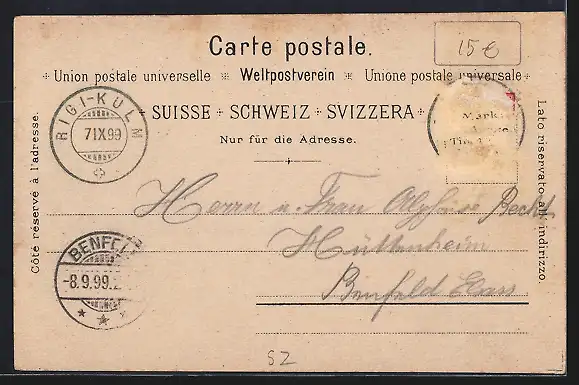 15€
Carte postale.
Union postale universelle Weltpostverein Unione postale universale
SUISSE SCHWEIZ SVIZZERA
Nur für die Adresse.
Côté réservé à l'adresse.
Lato riservato all'indirizzo.
RIGI-KULM
7 IX 99
Mark
Herrn u. Frau Alphonse Becht
Hüttenheim
Benfeld Elsass
BENFEL
-8.9.99.
SZ